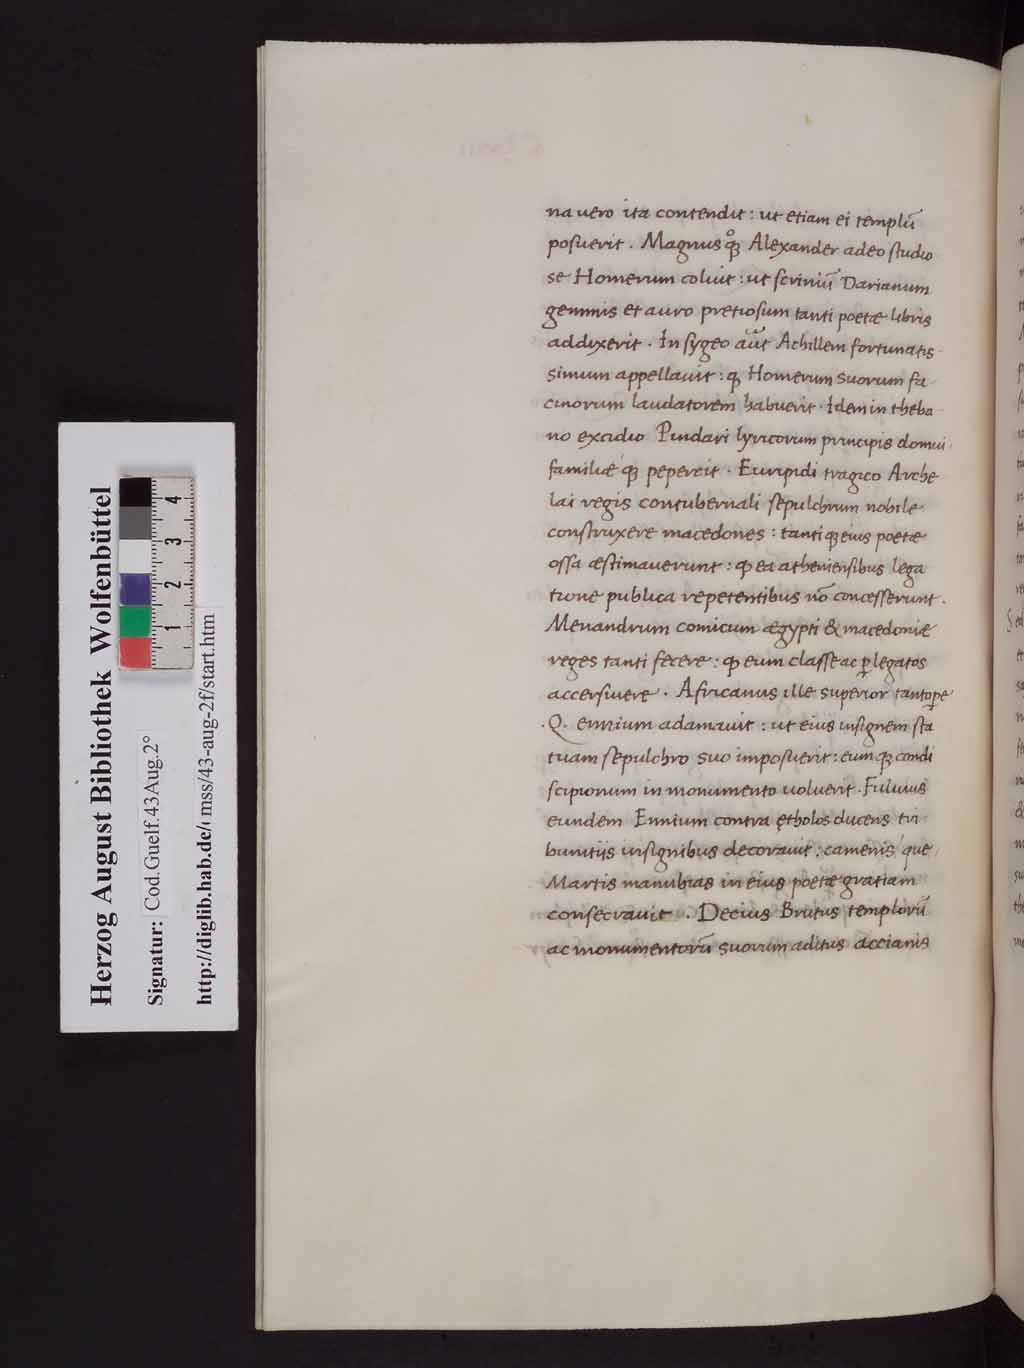 na uero ita contendit : ut etiam ei templū
posuerit . Magnus qꝫ Alexander adeo studio
se Homerum coluit : ut scriniū Darianum
gemmis et auro pretiosum tanti poetæ libris
addixerit . In sygeo aūt Achillem fortunatis-
simum appellauit : ꝙ Homerum suorum fa-
cinorum laudatorem habuerit . Idem in theba-
no excidio Pindari lyricorum principis domui
familiæ qꝫ pepercit . Euripidi tragico Arche
lai regis contubernali sepulchrum nobile
construxere macedones : tanti qꝫ eius poetæ
ossa æstimauerunt : ꝙ ea atheniensibus lega
tione publica repetentibus nō concesserunt .
Menandrum comicum ægypti & macedoniæ
reges tanti fecere : ꝙ eum classe ac ꝑ legatos
accersiuere . Africanus ille superior tantoꝑe
.Q. ennium adamauit : ut eius insignem sta
tuam sepulchro suo imposuerit : eum qꝫ condi
scipionum in monumento uoluerit . Fuluius
eundem Ennium contra ętholos ducens tri
bunitijs insignibus decorauit : camenis que
Martis manubias in eius poetæ gratiam
consecrauit . Decius Brutus templorū
ac monumentorū suorum aditus accianis
Herzog August Bibliothek Wolfenbüttel
Signatur: Cod.Guelf.43Aug.2°
http://diglib.hab.de/ mss/43-aug-2f/start.htm
1 2 3 4